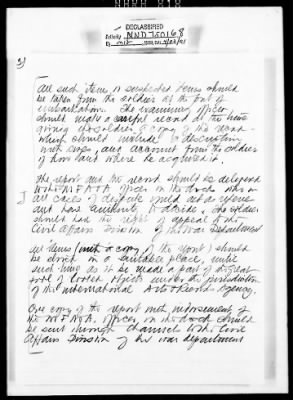 DECLASSIFIED
Authority NND 750168
2)
All such items or suspected items should
be taken from the soldier at the port of
embarkation. The examining officer
should make a careful record at the time
giving the soldier a copy of the record
which should include a description
and account from the soldier
of how and where he acquired it.
The report and the record should be delivered
to the MFA&A officer on the docks who in
all cases of dispute would act as
and have authority to decide. The soldier
should have the right of appeal to the
Civil Affairs Division of the War Department
All items (with a copy of the report) should
be stored in a place, until
such time as it be made a part of the great
pool of looted objects under the jurisdiction
of the international Agency.
One copy of the report with indorsement of
the MFA&A officer on the dock should
be sent through channels to the Civil
Affairs Division of the war department